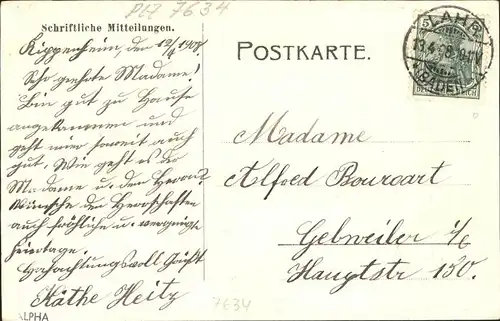 PLZ 7634
Schriftliche Mitteilungen.
Kippenheim, den 12/4 1908
Sehr geehrte Madame!
Bin gut zu Hause
angekommen und
geht mir soweit auch
gut. Wie geht es der
Madame u. dem Herrn?
Wünsche den Herrschaften
auch fröhliche u. vergnügte
Feiertage.
Hochachtungsvoll
Käthe Heitz
ALPHA
POSTKARTE.
LAHR
13.4.08
(BADEN)
5
Madame
Alfred Bourcart
Gebweiler i/E
Hauptstr 130.
7634